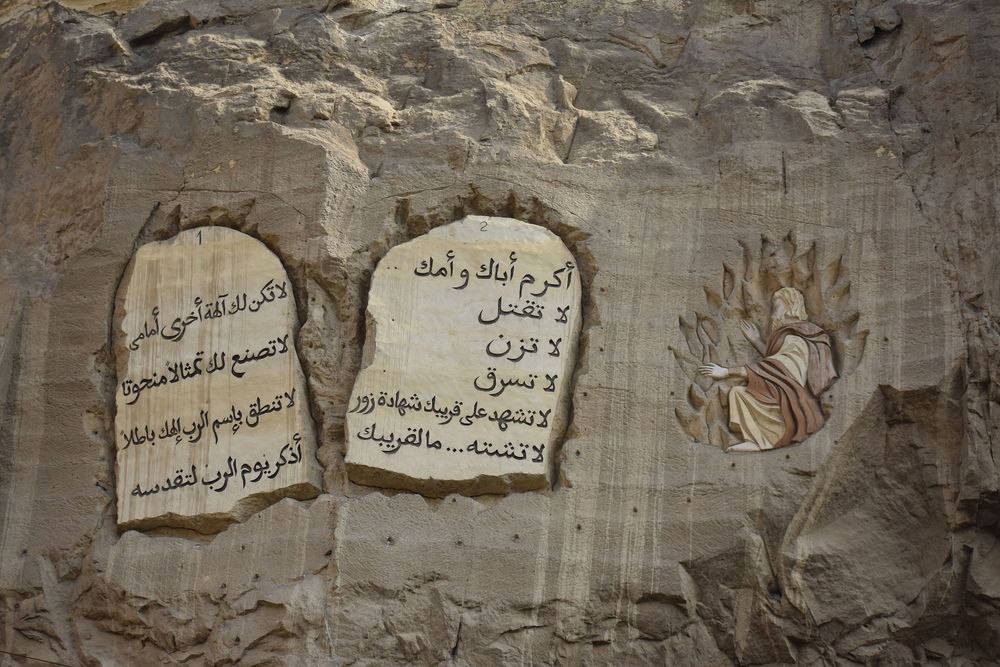 1
لا تكن لك آلهة أخرى أمامى
لا تصنع لك تمثالاً منحوتا
لا تنطق بإسم الرب إلهك باطلاً
أذكر يوم الرب لتقدسه
2
أكرم أباك و أمك ..
لا تقتل
لا تزن
لا تسرق
لا تشهد على قريبك شهادة زور
لا تشته ... مالقريبك